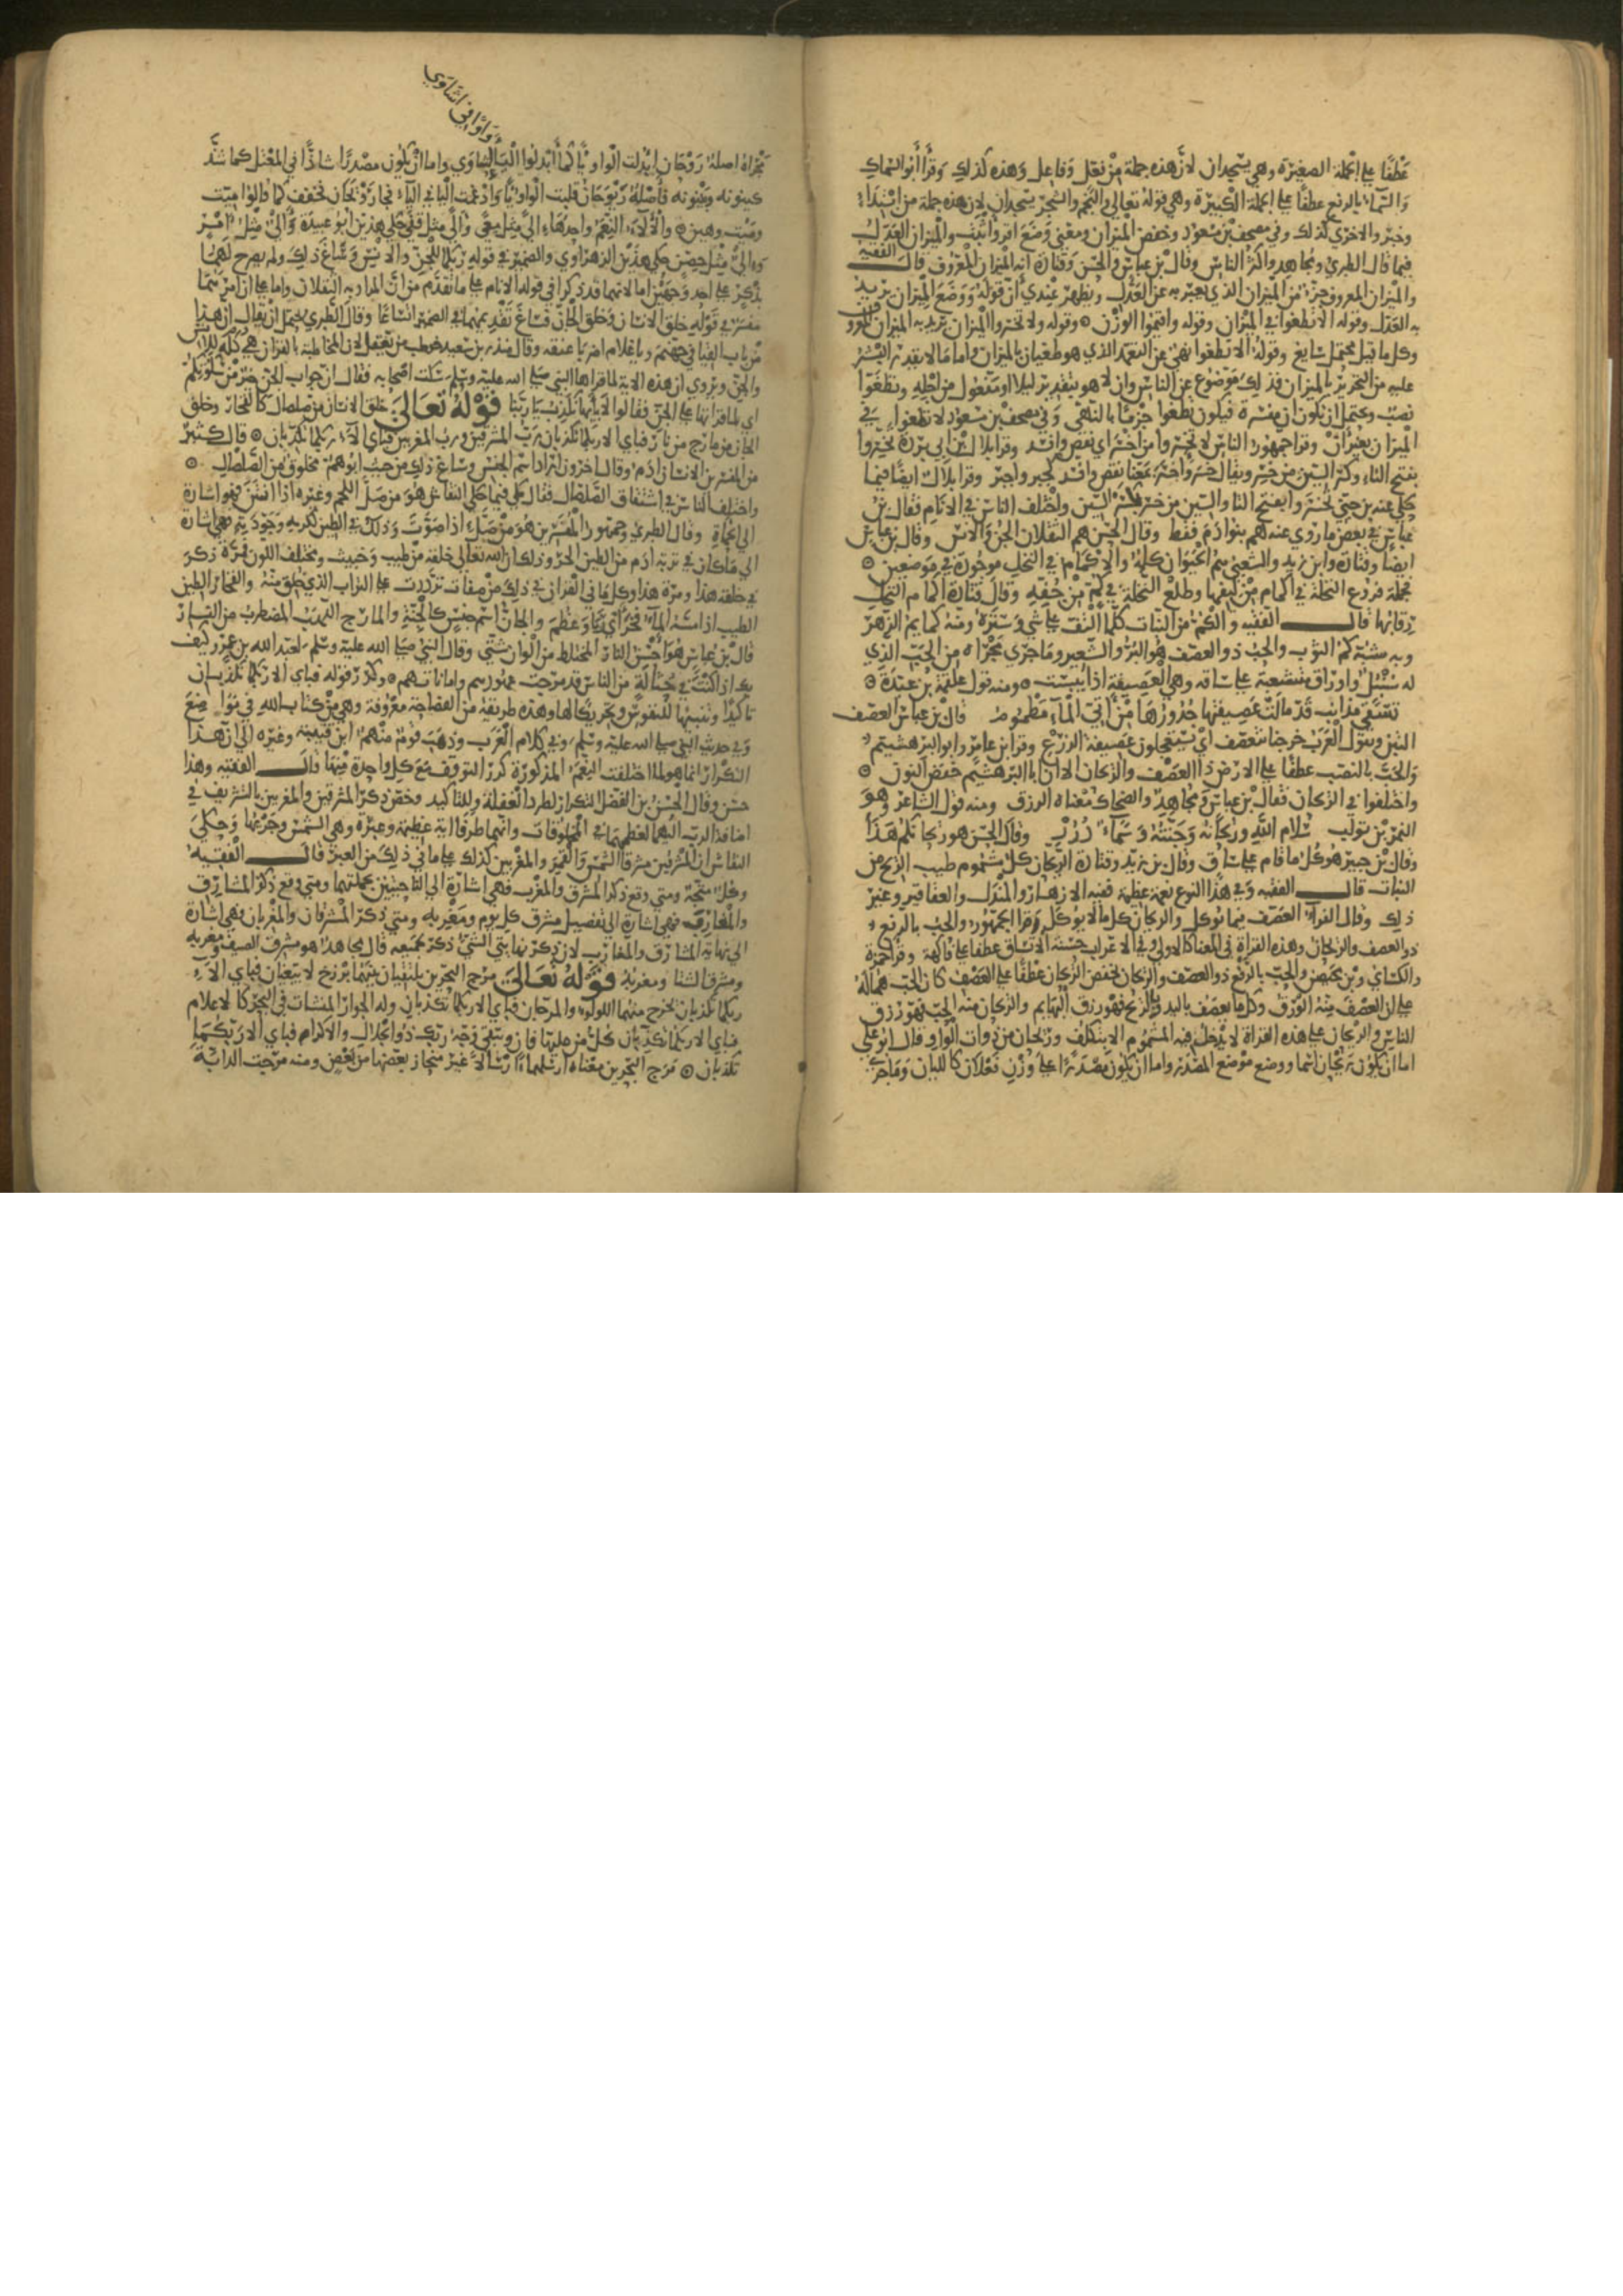 عطفا على الجملة الصغيرة وهي يسجدان لان هذه جملة من فعل وفاعل وهذه كذلك وقرأ أبو السماك
والسماء بالرفع عطفا على الجملة الكبيرة وهي قوله تعالى والنجم والشجر يسجدان لان هذه جملة من ابتداء
وخبر والاخرى كذلك وفي مصحف بن مسعود وخفض الميزان ومعنى وضع اقر واثبت والميزان العدل
فيما قال الطبري ومجاهد واكثر الناس وقال بن عباس والحسن وقتادة انه الميزان المعروف قال الفقيه
والميزان المعروف جزء من الميزان الذي يعبر به عن العدل ويظهر عندي أن قوله ووضع الميزان يريد
به العدل وقوله الا تطغوا في الميزان وقوله واقيموا الوزن وقوله ولا تخسروا الميزان يريد به الميزان المعروف
وكل ما قيل محتمل سايغ وقوله الا تطغوا نهي عن التعمد الذي هو طغيان بالميزان واما ما لا يقدر البشر
عليه من التحرير بالميزان فذلك موضوع عن الناس وان لا هو بتقدير ليلا او مفعول من اجله وتطغوا
نصب ويحتمل ان يكون ان مفسرة فيكون تطغوا جزما بالنهي وفي مصحف بن مسعود لا تطغوا في
الميزان بغير ان وقرا جمهور الناس لا تخسروا من اخسر اي نقص وافسد وقرا بلال بن ابي بردة تخسروا
بفتح التاء وكسر السين من خسر ويقال خسر واخسر بمعنا نقص وافسد كجبر واجبر وقرا بلال ايضا فيما
حكى عنه بن جني تخسروا بفتح التا والسين من خسر بكسر السين واختلف الناس في الانام فقال بن
عباس في بعض ما روي عنه هم بنوا ادم فقط وقال الحسن هم الثقلان الجن والانس وقال بن عباس
ايضا وقتادة وابن زيد والشعبي هم الحيوان كله والاكمام في النخل موجودة في موضعين
فجملة فروع النخلة في اكمام من ليفها وطلع النخلة في كم من جفه وقال قتادة اكمام النخل
رقابها قال الفقيه والكم من النبات كلما التف على شي وستره ومنه كمايم الزهر
وبه شبه كم الثوب والحب ذو العصف هو البر والشعير وما جرى مجراه من الحب الذي
له سنبل واوراق متشعبة على ساقه وهي العصيفة اذا يبست ومنه قول علقمة بن عبدة
تسقي مذانب قد مالت عصيفتها حدورها من أتي الماء مطموم قال بن عباس العصف
التبن وتقول العرب خرجنا نتعصف أي يستعجلون عصيفة الزرع وقرا ابن عامر وابو البرهشيم
والحب بالنصب عطفا على الارض ذا العصف والريحان الا ان ابا البرهشيم خفض النون
واختلفوا في الريحان فقال بن عباس ومجاهد والضحاك معناه الرزق ومنه قول الشاعر وهو
النمر بن تولب سلام الله وريحانه وجنته وسماء درر وقال الحسن هو ريحانكم هذا
وقال بن جبير هو كل ما قام على ساق وقال بن زيد وقتادة الريحان كل مشموم طيب الريح من
النبات قال الفقيه وفي هذا النوع نعمة عظيمة ففيه الازهار والمندل والعقاقير وغير
ذلك وقال الفراء العصف فيما يوكل والريحان كل ما لا يوكل وقرا الجمهور والحب بالرفع
ذو العصف والريحان وهذه القراة في المعنا كالاولى وفي الاعراب حسنة الاتساق عطفا على فاكهة وقرا حمزة
والكساي وبن محيصن والحب بالرفع ذو العصف والريحان بخفض الريحان عطفا على العصف كان الحب هما له
على ان العصف منه الورق وكل ما يعصف باليد وبالريح فهو رزق البهايم والريحان منه الحب فهو رزق
الناس والريحان على هذه القراة لا يدخل فيه المشموم الا بتكلف وريحان من ذوات الواو قال ابو علي
اما ان يكون ريحان اسما ووضع موضع المصدر واما ان يكون مصدرا على وزن فعلان كالليان وما جرى
واوا في اشاوي
مجراه اصله روحان ابدلت الواو يا كما أبدلوا الياء واما ان يكون مصدرا شاذا في المعتل كما شذ
كينونه وبينونه فاصله ريوحان قلبت الواو يا وادغمت اليا في الياء فجا ريحان فخفف كما قالوا ميت
وميت وهين والآلاء النعم واحدها الى مثل معى والي مثل حكى هذين ابو عبيدة والي مثل امر
والي مثل حصن حكى هذين الزهراوي والضمير في قوله ربكما للجن والانس وساغ ذلك ولم يصرح لهما
بذكر على احد وجهين اما لانهما قد ذكرا في قوله الانام على ما تقدم من ان المراد به الثقلان واما على ان امرهما
مفسر في قوله خلق الانسان وخلق الجان فساغ تقديمهما في الضمير اتساعا وقال الطبري يحتمل ان يقال ان هذا
من باب القيا في جهنم ويا غلام اضربا عنقه وقال منذر بن سعيد خوطب من يعقل لان المخاطبة بالقران هي كله للانس
والجن ويروى ان هذه الاية لما قراها النبي صلى الله عليه وسلم سكت اصحابه فقال ان جواب الجن خير من سكوتكم
اي لما قراتها على الجن فقالوا لا بأيها نكذب يا ربنا قوله تعالى خلق الانسان من صلصال كالفخار وخلق
الجان من مارج من نار فباي الاء ربكما تكذبان رب المشرقين ورب المغربين فباي الاء ربكما تكذبان قال كثير
من المفسرين الانسان ادم وقال اخرون اراد اسم الجنس وساغ ذلك من حيث ابوهم مخلوق من الصلصال
واختلف الناس في اشتقاق الصلصال فقال مكي فيما حكى النقاش هو من صل اللحم وغيره اذا انتن فهو اشارة
الى الحماة وقال الطبري وجمهور المفسرين هو من صل اذا صوت وذلك في الطين لكرمه وجودته فهي اشارة
الى ما كان في تربة ادم من الطين الحر وذلك ان الله تعالى خلقه من طيب وخبيث ومختلف اللون فمرة ذكر
في خلقه هذا ومرة هذا وكل ما في القران في ذلك من صفات ترددت على التراب الذي خلق منه والفخار الطين
الطيب اذا مسه الماء فخر أي ربا وعظم والجان اسم جنس كالجنة والمارج اللهب المضطرب من النار
قال بن عباس هو احسن النار المختلط من الوان شتى وقال النبي صلى الله عليه وسلم لعبد الله بن عمرو كيف
بك اذا كنت في حثالة من الناس قد مرجت عهودهم واماناتهم وكرر قوله فباي الاء ربكما تكذبان
تاكيدا وتنبيها للنفوس وتحريكا لها وهذه طريقة من الفصاحة معروفة وهي من كتاب الله في مواضع
وفي حديث النبي صلى الله عليه وسلم وفي كلام العرب وذهب قوم منهم ابن قتيبة وغيره الى ان هذا
التكرار انما هو لما اختلفت النعم المذكورة كرر التوقيف مع كل واحدة منها قال الفقيه وهذا
حسن وقال الحسين بن الفضل التكرار لطرد الغفلة وللتاكيد وخص ذكر المشرقين والمغربين بالتشريف في
اضافة الرب اليهما لعظمهما في المخلوقات وانهما طرفا اية عظيمة وعبرة وهي الشمس وجريها وحكى
النقاش ان المشرقين مشرقا الشمس والقمر والمغربين كذلك على ما في ذلك من العبر قال الفقيه
وكل متجه ومتى وقع ذكر المشرق والمغرب فهي اشارة الى الناحيتين بجملتهما ومتى وقع ذكر المشارق
والمغارب فهي اشارة الى تفصيل مشرق كل يوم ومغربه ومتى ذكر المشرقان والمغربان فهي اشارة
الى نهاية المشارق والمغارب لان ذكر نهايتي الشي ذكر لجميعه قال مجاهد هو مشرق الصيف ومغربه
ومشرق الشتا ومغربه قوله تعالى مرج البحرين يلتقيان بينهما برزخ لا يبغيان فباي الاء
ربكما تكذبان يخرج منهما اللولو والمرجان فباي الاء ربكما تكذبان وله الجوار المنشات في البحر كالاعلام
فباي الاء ربكما تكذبان كل من عليها فان ويبقى وجه ربك ذو الجلال والاكرام فباي الاء ربكما
تكذبان مرج البحرين معناه ارسلهما ارسالا غير منحاز بعضهما من بعض ومنه مرجت الدابة